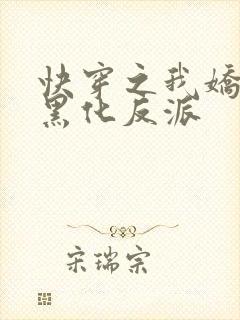 快穿之我娇
黑化反派
宋瑞宗